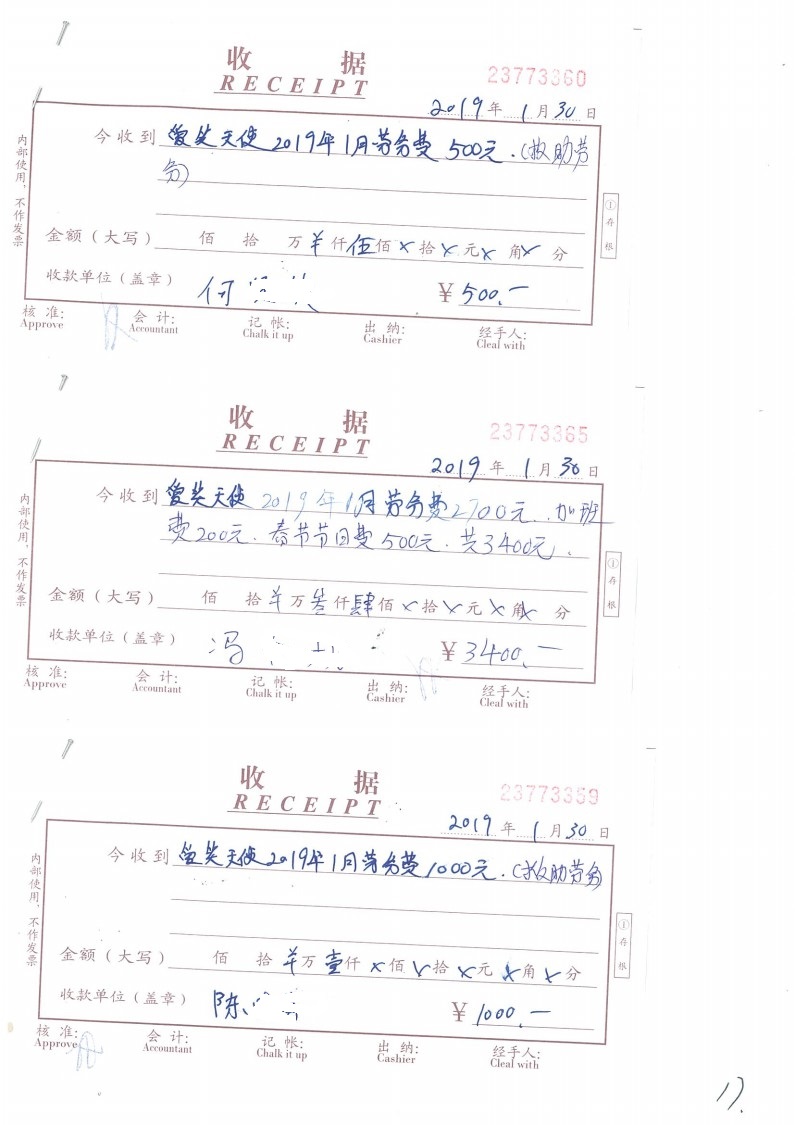 收 据
RECEIPT
23773360
2019年 1月30日
今收到 爱笑天使2019年1月劳务费 500元.(救助劳
务)
金额(大写) 佰 拾 万 羊仟伍佰×拾×元×角×分
收款单位(盖章) 何 ¥500.—
核 准: 会 计: 记 帐: 出 纳: 经手人:
Approve Accountant Chalk it up Cashier Cleal with
内部使用,不作发票
①存根
收 据
RECEIPT
23773365
2019年 1月30日
今收到 爱笑天使 2019年1月劳务费2700元.加班
费200元.春节节日费500元.共3400元.
金额(大写) 佰 拾羊万叁仟肆佰×拾×元×角×分
收款单位(盖章) 冯 ¥3400.—
核 准: 会 计: 记 帐: 出 纳: 经手人:
Approve Accountant Chalk it up Cashier Cleal with
内部使用,不作发票
①存根
收 据
RECEIPT
23773359
2019年 1月30日
今收到 爱笑天使2019年1月劳务费1000元.(救助劳务)
金额(大写) 佰 拾羊万壹仟×佰×拾×元×角×分
收款单位(盖章) 陈 ¥1000.—
核 准: 会 计: 记 帐: 出 纳: 经手人:
Approve Accountant Chalk it up Cashier Cleal with
内部使用,不作发票
①存根
17.